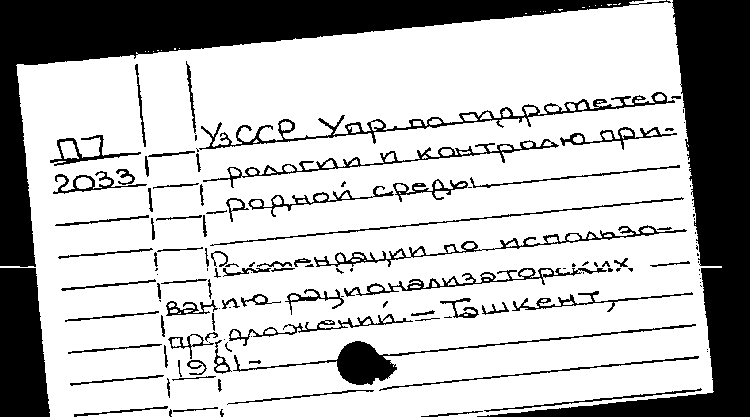 П7
2033
УзССР. Упр. по гидрометео-
рологии и контролю при-
родной среды.
Рекомендации по использо-
ванию рационализаторских
предложений. — Ташкент,
1981-